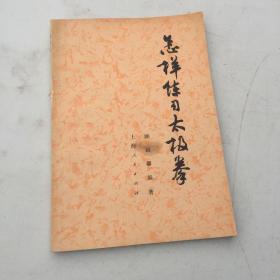 怎样练习太极拳
顾留馨著
上海人民出版社